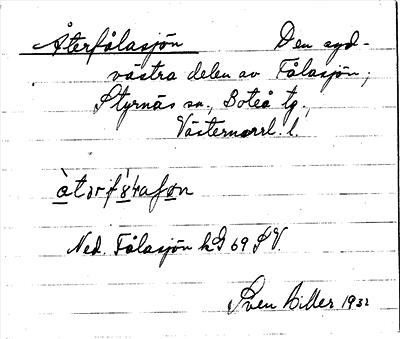 Återfålasjön Den syd-
västra delen av Fålasjön,
Styrnäs sn., Boteå tg.,
Västernorrl. l.
Ned. Fålasjön kG 69 SV.
Sven Biller 1932